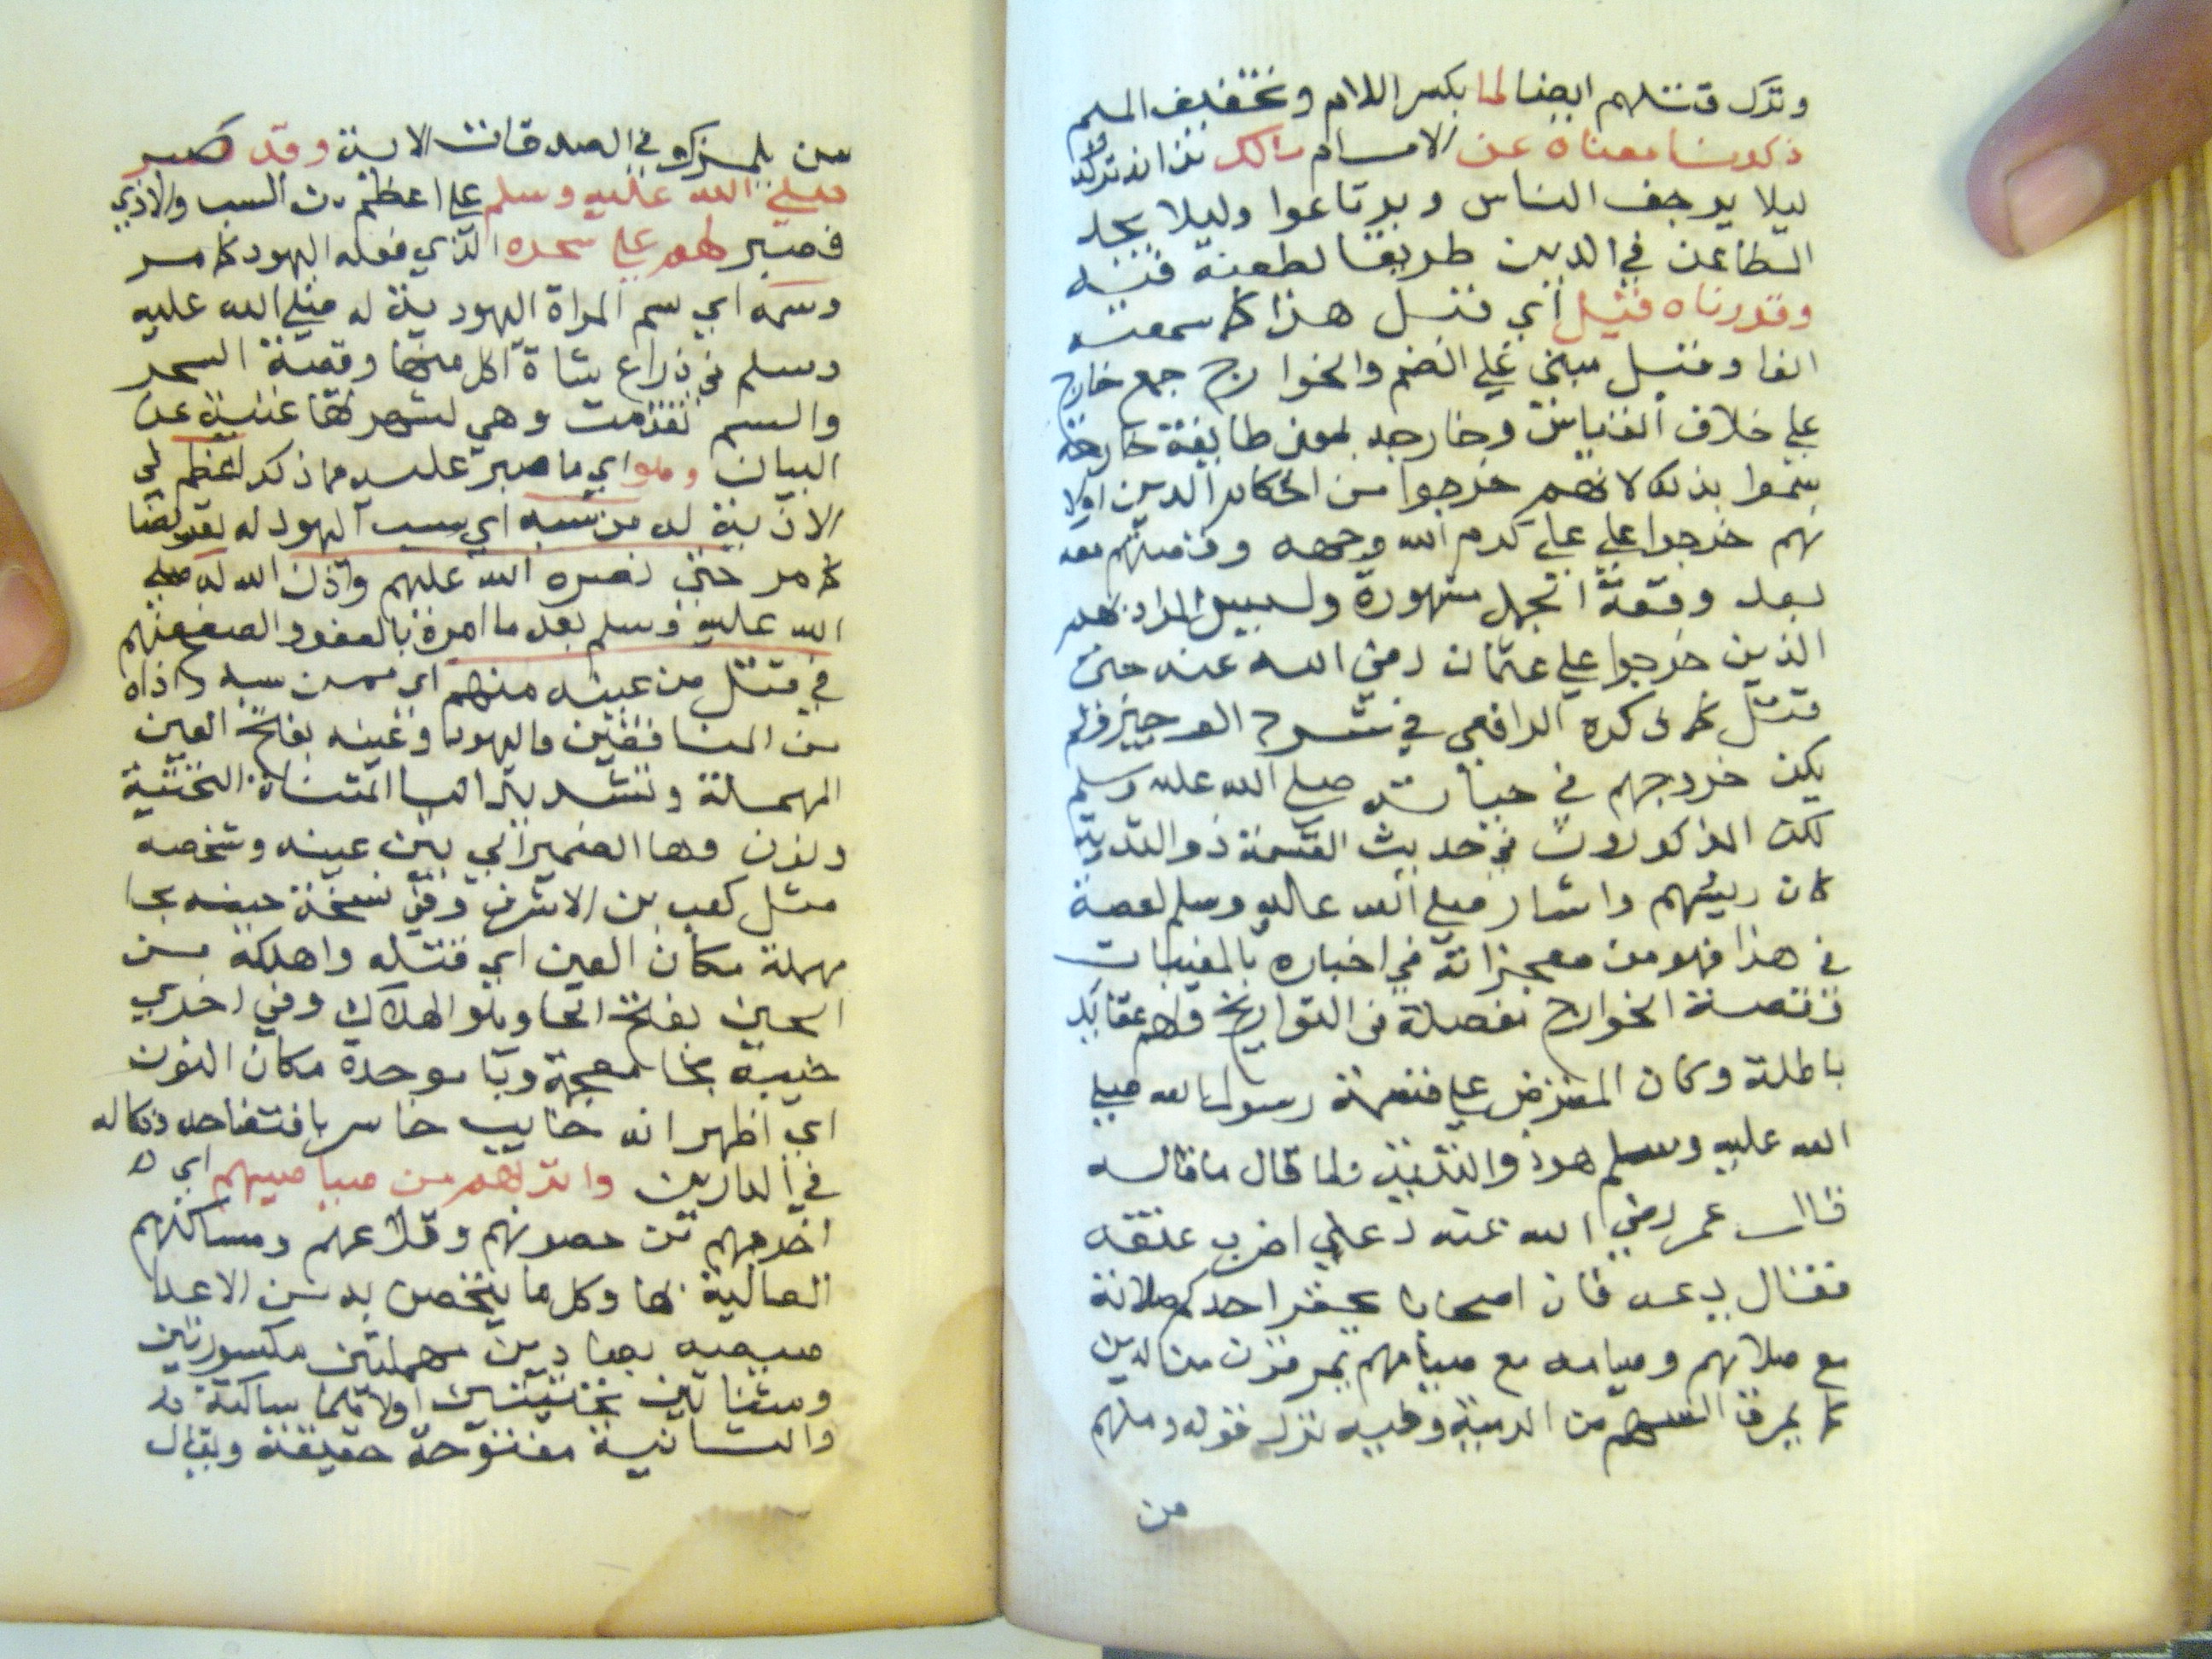 وترك قتلهم ايضا لما بكسر اللام وتخفيف الميم
ذكرنا معناه عن الامام مالك من انه تركه
ليلا يرجف الناس ويرتاعوا وليلا يجد
الطاعن في الدين طريقا لطعنة فتنه
وقررناه قبل اي قبل هذا كما سمعته
انفا وقبل مبني علي الضم والخوارج جمع خارج
علي خلاف القياس وخارجه بمعني طايفة خارجة
سموا بذلك لانهم خرجوا من احكام الدين اولا
نهم خرجوا علي علي كرم الله وجهه وقصتهم معه
بعد وقعة الجمل مشهورة وليس المراد بهم
الذين خرجوا علي عثمان رضي الله عنه حتي
قتل كما ذكره الرافعي في شرح الوجيز ولم
يكن خروجهم في حياته صلي الله عليه وسلم
لكن المذكورون في حديث القسمة ذو الثدية
كان رييسهم واشار صلي الله عليه وسلم لقصة
في هذا فهو من معجزاته في اخباره بالمغيبات
وقصة الخوارج مفصلة في التواريخ ولهم عقايد
باطلة وكان المعترض علي قسمة رسول الله صلي
الله عليه وسلم هو ذو الثدية ولما قال ما قاله
قال عمر رضي الله عنه دعني اضرب عنقه
فقال دعه فان اصحابا يحقر احدكم صلاته
مع صلاتهم وصيامه مع صيامهم يمرقون من الدين
كما يمرق السهم من الرمية وفيه نزل قوله ومنهم
من
من يلمزك في الصدقات الاية وقد صبر
صلي الله عليه وسلم علي اعظم من السب والاذي
فصبر لهم علي سحره الذي فعله اليهود كما مر
وسمه اي سم المراة اليهودية له صلي الله عليه
وسلم في ذراع شاة اكل منها وقصة السحر
والسم تقدمت وهي لشهرتها غنية عن
البيان وهو اي ما صبر عليه مما ذكر اعظم في
الاذية له من سبه اي سب اليهود له تعريضا
كما مر حتي نصره الله عليهم واذن الله له صلي
الله عليه وسلم بعد ما امره بالعفو والصفح عنهم
في قتل من عينه منهم اي ممن سبه واذاه
من المنافقين واليهود وعينه بفتح العين
المهملة وتشديد اليا المثناة التحتية
ونون وها الضمير اي بين عينه وشخصه
مثل كعب بن الاشرف وفي نسخة حينه بحا
مهملة مكان العين اي قتله واهلكه من
الحين بفتح الحا وهو الهلاك وفي اخري
خيبه بخا معجمة وبا موحدة مكان النون
اي اظهر انه خايب خاسر بافتضاحه ونكاله
في الدارين وانزلهم من صياصيهم اي
اخرجهم من حصونهم وقلاعهم ومساكنهم
العالية بها وكل ما يتحصن به من الاعدا
صيصيه بصادين مهملتين مكسورتين
ومثناتين تحتيتين اولاهما ساكنة
والثانية مفتوحة خفيفة ويقال